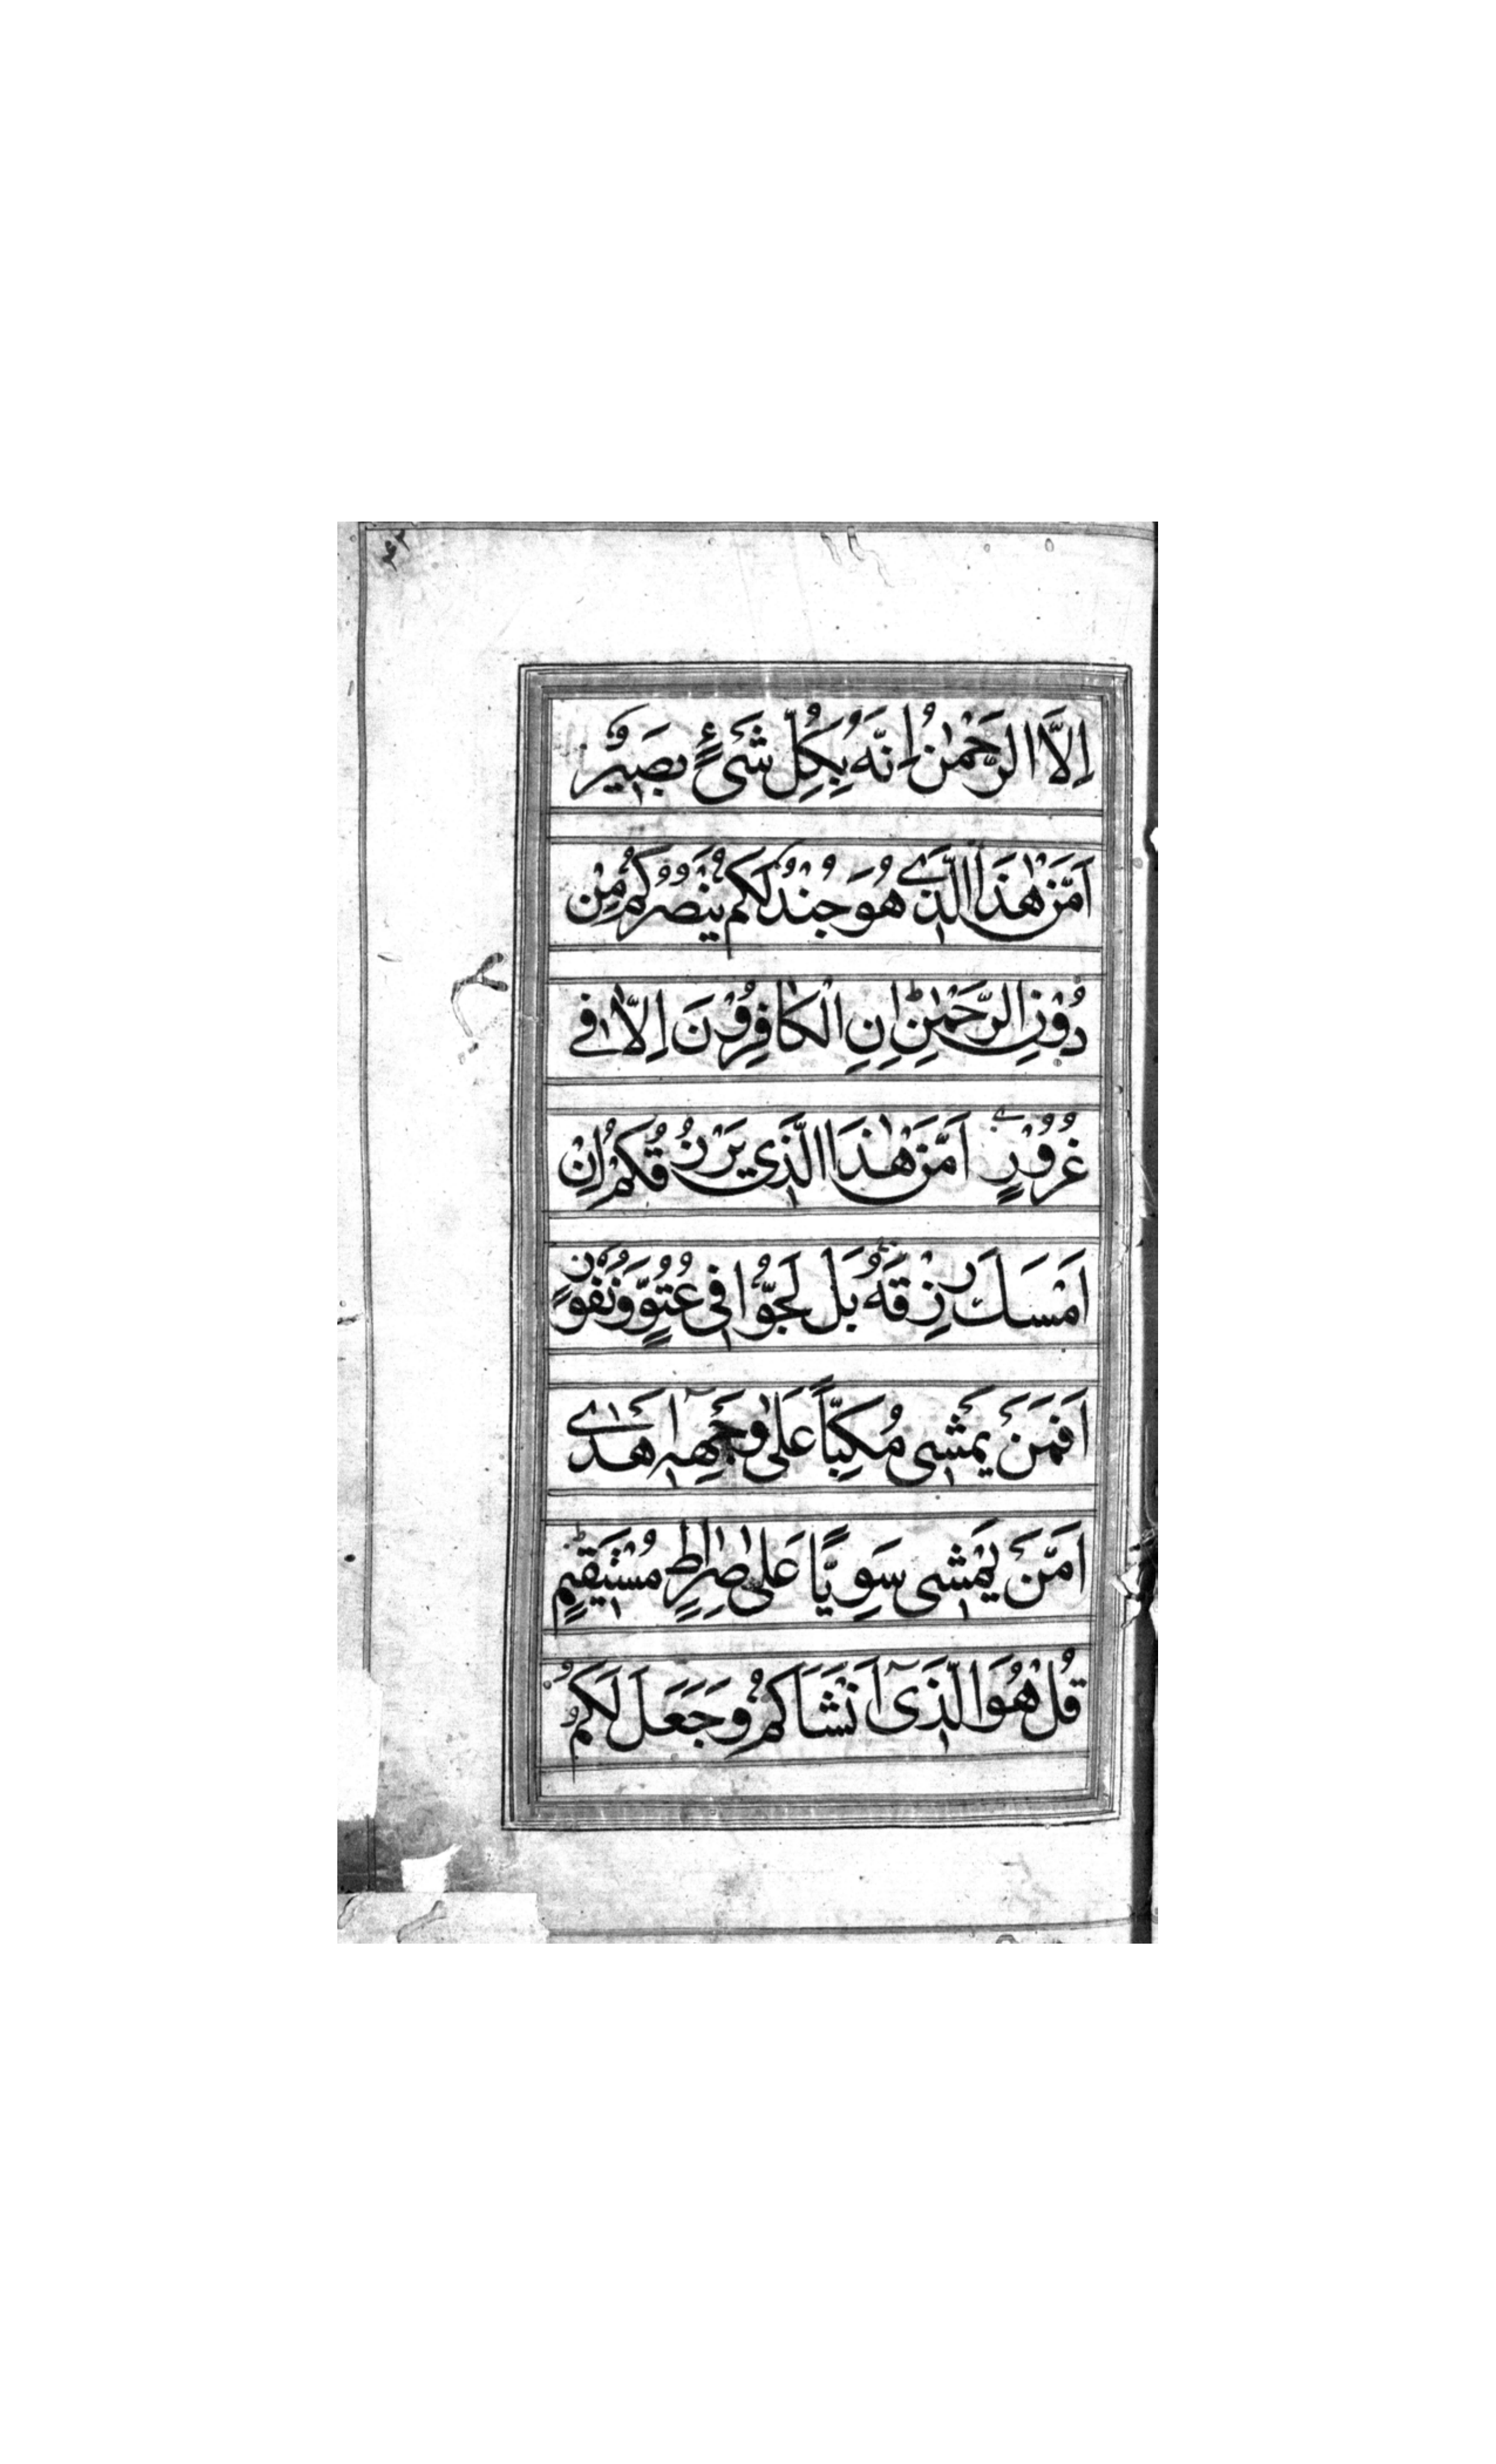 اِلَّا الرَّحْمٰنُ اِنَّهُ بِكُلِّ شَىْءٍ بَصِيْرٌ
اَمَّنْ هٰذَا الَّذِى هُوَ جُنْدٌ لَكُمْ يَنْصُرُكُمْ مِنْ
دُوْنِ الرَّحْمٰنِ اِنِ الْكَافِرُوْنَ اِلَّا فِى
غُرُوْرٍ اَمَّنْ هٰذَا الَّذِى يَرْزُقُكُمْ اِنْ
اَمْسَكَ رِزْقَهُ بَلْ لَجُّوْا فِى عُتُوٍّ وَنُفُوْرٍ
اَفَمَنْ يَمْشِى مُكِبًّا عَلٰى وَجْهِهٖ اَهْدٰى
اَمَّنْ يَمْشِى سَوِيًّا عَلٰى صِرَاطٍ مُسْتَقِيْمٍ
قُلْ هُوَ الَّذِىٓ اَنْشَاَكُمْ وَجَعَلَ لَكُمُ